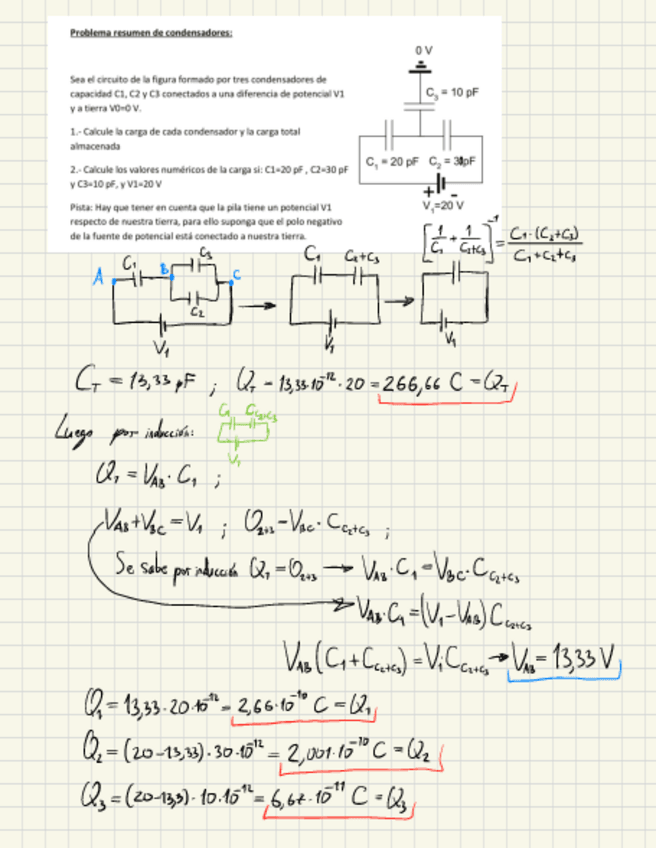 Problema resumen de condensadores:
Sea el circuito de la figura formado por tres condensadores de
capacidad C1, C2 y C3 conectados a una diferencia de potencial V1
y a tierra V0=0 V.
1.- Calcule la carga de cada condensador y la carga total
almacenada
2.- Calcule los valores numéricos de la carga si: C1=20 pF , C2=30 pF
y C3=10 pF, y V1=20 V
Pista: Hay que tener en cuenta que la pila tiene un potencial V1
respecto de nuestra tierra, para ello suponga que el polo negativo
de la fuente de potencial está conectado a nuestra tierra.
0 V
C₃ = 10 pF
C₁ = 20 pF C₂ = 30pF
+ -
V₁=20 V
[1/C₁ + 1/(C₂+C₃)]⁻¹ = C₁·(C₂+C₃) / (C₁+C₂+C₃)
A C₁ B C₃ C C₂ V₁ → C₁ C₂+C₃ V₁ → V₁
C_T = 13,33 pF ; Q_T = 13,33·10⁻¹²·20 = 266,66 C = Q_T
Luego por inducción: C₁ C_C₂+C₃ V₁
Q₁ = V_AB · C₁ ;
V_AB + V_BC = V₁ ; Q₂₊₃ = V_BC · C_C₂+C₃ ;
Se sabe por inducción Q₁ = Q₂₊₃ → V_AB · C₁ = V_BC · C_C₂+C₃
V_AB · C₁ = (V₁ - V_AB) C_C₂+C₃
V_AB (C₁ + C_C₂+C₃) = V₁ C_C₂+C₃ → V_AB = 13,33 V
Q₁ = 13,33 · 20·10⁻¹² = 2,66·10⁻¹⁰ C = Q₁
Q₂ = (20-13,33) · 30·10⁻¹² = 2,001·10⁻¹⁰ C = Q₂
Q₃ = (20-13,3) · 10·10⁻¹² = 6,67·10⁻¹¹ C = Q₃